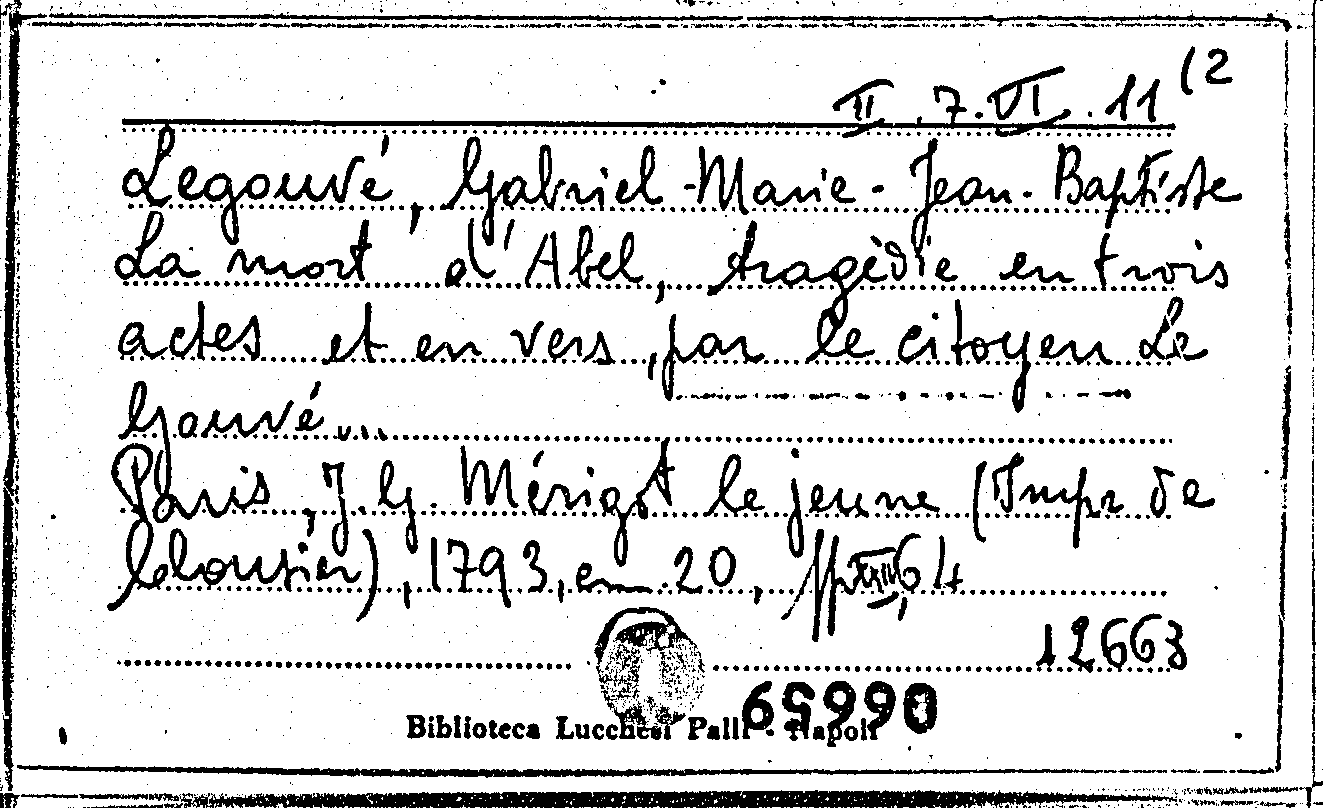 II.7.VI.11(2
Legouvé, Gabriel-Marie-Jean-Baptiste
La mort d'Abel, tragèdie en trois
actes et en vers, par le citoyen Le
Gouvé...
Paris, J.G. Mérigot le jeune (Impr de
Clousier), 1793, cm 20, pp XXIII, 64
12663
066659
Biblioteca Lucchesi Palli - Napoli